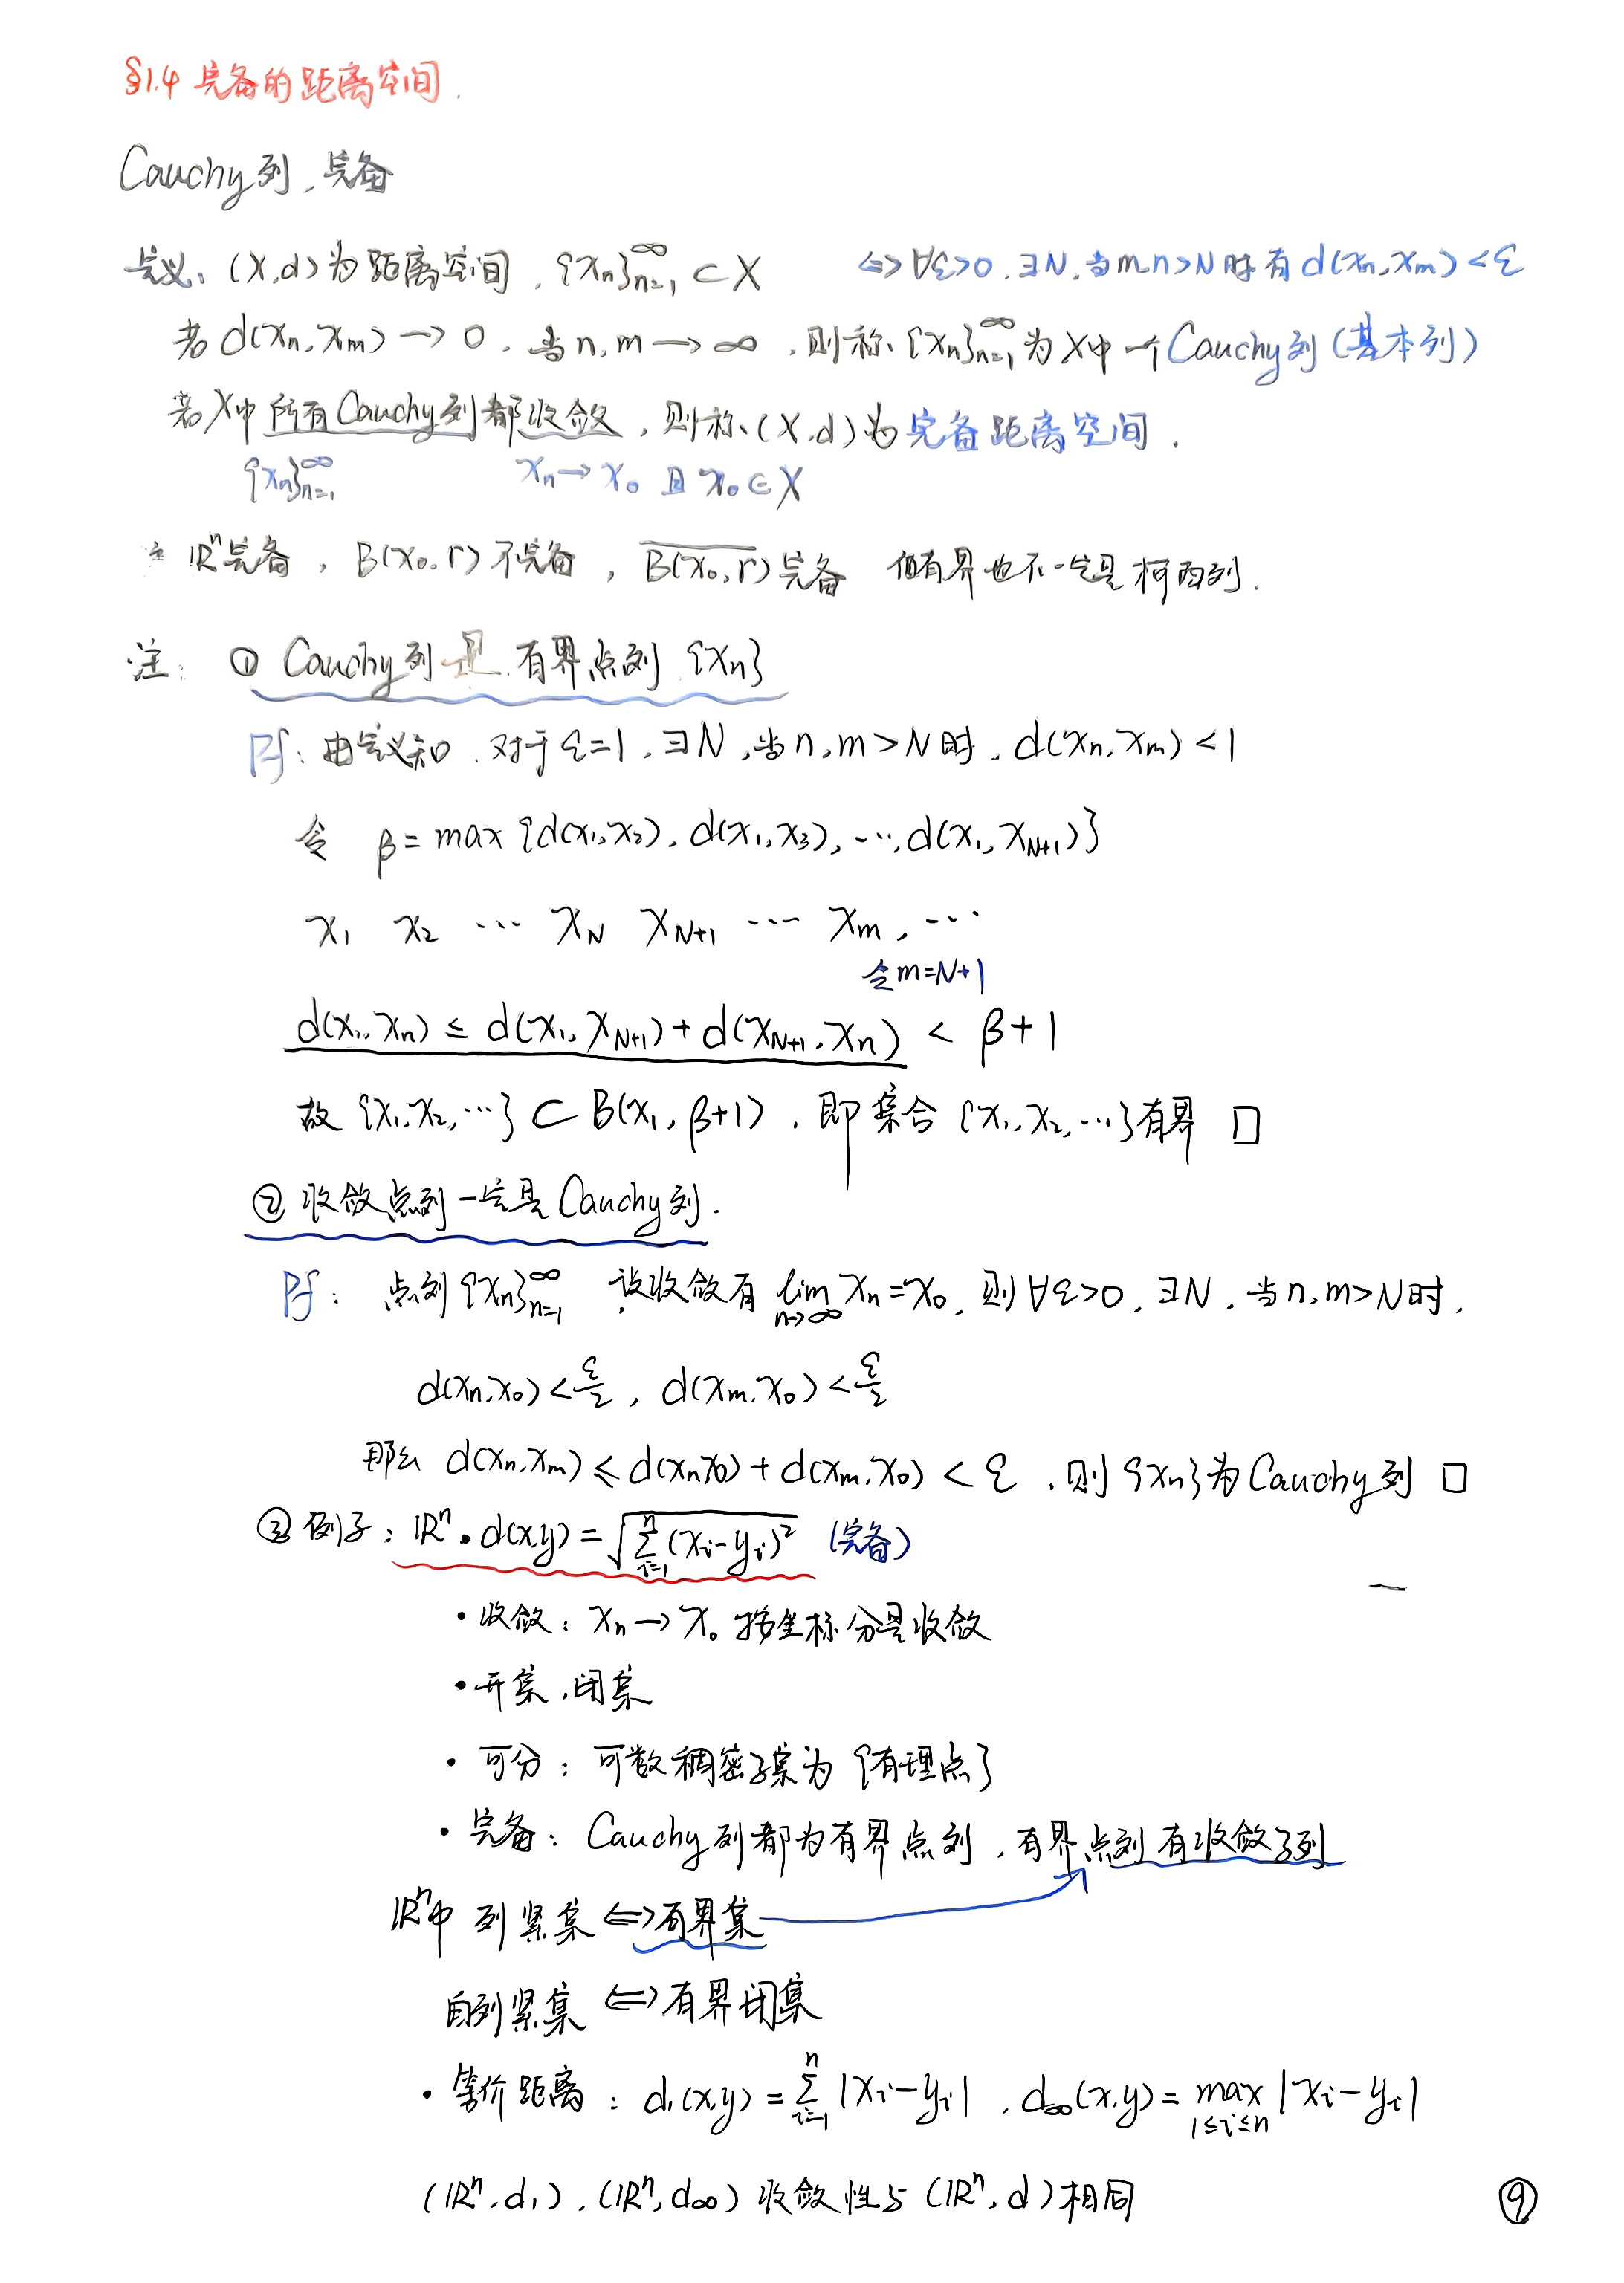 §1.4 完备的距离空间.
Cauchy列, 完备
定义: (X,d)为距离空间, {xₙ}ₙ₌₁^∞ ⊂ X ⇔ ∀ε>0, ∃N, 当m,n>N时有d(xₙ,xₘ)<ε
若d(xₙ,xₘ)→0, 当n,m→∞, 则称{xₙ}ₙ₌₁^∞为X中一个Cauchy列(基本列)
若X中所有Cauchy列都收敛, 则称(X,d)为完备距离空间.
{xₙ}ₙ₌₁^∞ xₙ→x₀ 且 x₀∈X
ℝⁿ完备, B(x₀,r)不完备, \overline{B(x₀,r)}完备 但有界也不一定是柯西列.
注: ① Cauchy列是有界点列{xₙ}
Pf: 由定义知, 对于ε=1, ∃N, 当n,m>N时, d(xₙ,xₘ)<1
令 β=max{d(x₁,x₂), d(x₁,x₃), ⋯, d(x₁,x_{N+1})}
x₁ x₂ ⋯ x_N x_{N+1} ⋯ xₘ, ⋯
令m=N+1
d(x₁,xₙ) ≤ d(x₁,x_{N+1})+d(x_{N+1},xₙ) < β+1
故{x₁,x₂,⋯} ⊂ B(x₁,β+1), 即集合{x₁,x₂,⋯}有界 □
② 收敛点列一定是Cauchy列.
Pf: 点列{xₙ}ₙ₌₁^∞ 设收敛有 lim_{n→∞} xₙ=x₀, 则∀ε>0, ∃N, 当n,m>N时,
d(xₙ,x₀)<ε/2, d(xₘ,x₀)<ε/2
那么 d(xₙ,xₘ) ≤ d(xₙ,x₀)+d(xₘ,x₀) < ε, 则{xₙ}为Cauchy列 □
③ 例子: ℝⁿ. d(x,y)=√(∑_{i=1}^n (xᵢ-yᵢ)²) (完备)
• 收敛: xₙ→x₀ 按坐标分量收敛
• 开集, 闭集
• 可分: 可数稠密子集为{有理点}
• 完备: Cauchy列都为有界点列, 有界点列有收敛子列
ℝⁿ中 列紧集⇔有界集
自列紧集⇔有界闭集
• 等价距离: d₁(x,y)=∑_{i=1}^n |xᵢ-yᵢ|, d_∞(x,y)=max_{1≤i≤n}|xᵢ-yᵢ|
(ℝⁿ,d₁), (ℝⁿ,d_∞) 收敛性与(ℝⁿ,d)相同
⑨